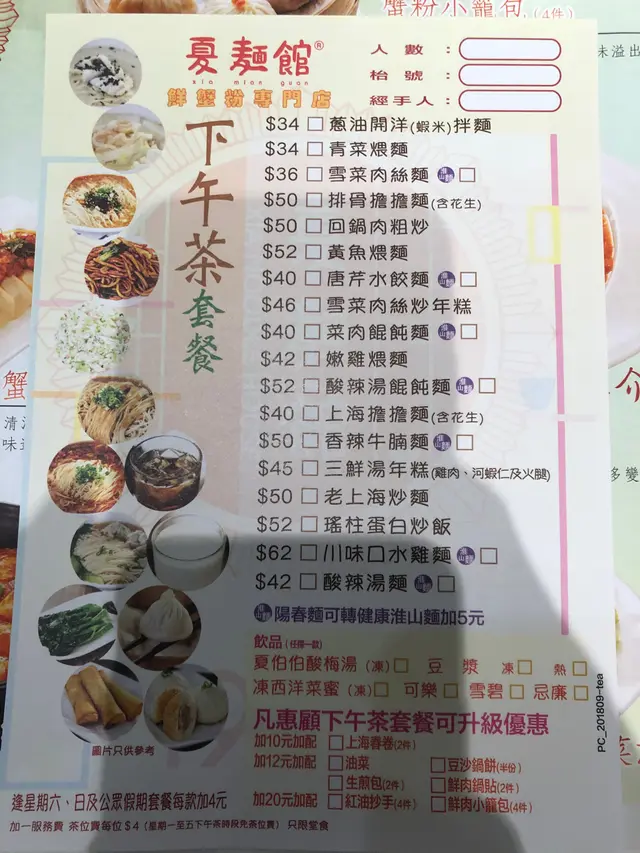 蟹粉小籠包(4件)
夏麵館®
xia mian guan
鮮蟹粉專門店
人數：
枱號：
經手人：
下午茶套餐
$34 □ 蔥油開洋(蝦米)拌麵
$34 □ 青菜煨麵
$36 □ 雪菜肉絲麵 淮山麵 □
$50 □ 排骨擔擔麵(含花生)
$50 □ 回鍋肉粗炒
$52 □ 黃魚煨麵
$40 □ 唐芹水餃麵 淮山麵 □
$46 □ 雪菜肉絲炒年糕
$40 □ 菜肉餛飩麵 淮山麵 □
$42 □ 嫩雞煨麵
$52 □ 酸辣湯餛飩麵 淮山麵 □
$40 □ 上海擔擔麵(含花生)
$50 □ 香辣牛腩麵 淮山麵 □
$45 □ 三鮮湯年糕(雞肉、河蝦仁及火腿)
$50 □ 老上海炒麵
$52 □ 瑤柱蛋白炒飯
$62 □ 川味口水雞麵 淮山麵 □
$42 □ 酸辣湯麵 淮山麵 □
淮山麵 陽春麵可轉健康淮山麵加5元
飲品(任擇一款)
夏伯伯酸梅湯(凍)□ 豆漿 凍□ 熱□
凍西洋菜蜜(凍)□ 可樂□ 雪碧□ 忌廉□
凡惠顧下午茶套餐可升級優惠
加10元加配 □上海春卷(2件)
加12元加配 □油菜 □豆沙鍋餅(半份)
□生煎包(2件) □鮮肉鍋貼(2件)
加20元加配 □紅油抄手(4件) □鮮肉小籠包(4件)
圖片只供參考
逢星期六、日及公眾假期套餐每款加4元
加一服務費 茶位費每位$4(星期一至五下午茶時段免茶位費) 只限堂食
PC_201809-tea
味溢出
蟹
清
味
介
多變
菜